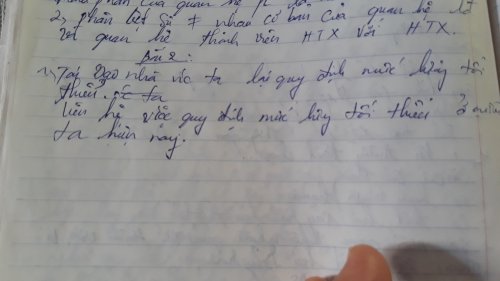 phần của quan hệ pl
2, phân biệt sự ≠ nhau cơ bản của quan hệ lđ
với quan hệ thành viên HTX với HTX.
Bài 2:
1, Tại sao nhà nc ta lại quy định mức lương tối
thiểu.
Liên hệ việc quy định mức lương tối thiểu ở nước
ta hiện nay.